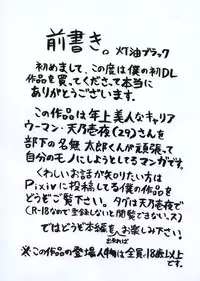 前書き。
灯油ブラック
初めまして、この度は僕の初DL
作品を買ってくださって本当に
ありがとうございます。
この作品は年上美人なキャリア
ウーマン・天乃壱夜(29)さんを
部下の名無太郎くんが頑張って
自分のモノにしようとしてるマンガです。
くわしいお話が知りたい方は
Pixivに投稿してる僕の作品を
どうぞご覧下さい。タグは天乃壱夜で
(R-18なので登録しないと閲覧できないっス)
ではどうぞ本編も
出来れば
お楽しみ下さい。
※この作品の登場人物は全員18歳以上
です。